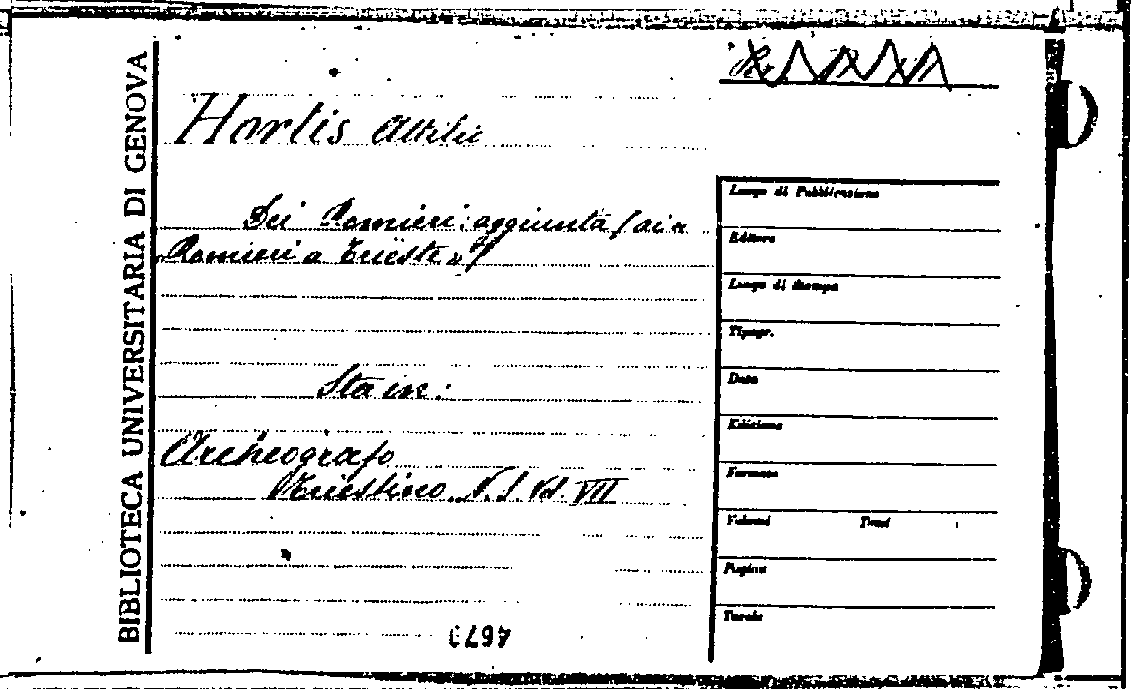 BIBLIOTECA UNIVERSITARIA DI GENOVA
Hortis Attilio
Dei Romieri: aggiunta (ai «
Romieri a Trieste»)
Sta in:
Archeografo
Triestino. N. S. Vol. VII
Luogo di Pubblicazione
Editore
Luogo di stampa
Tipogr.
Data
Edizione
Formato
Volumi Tomi
Pagine
Tavole